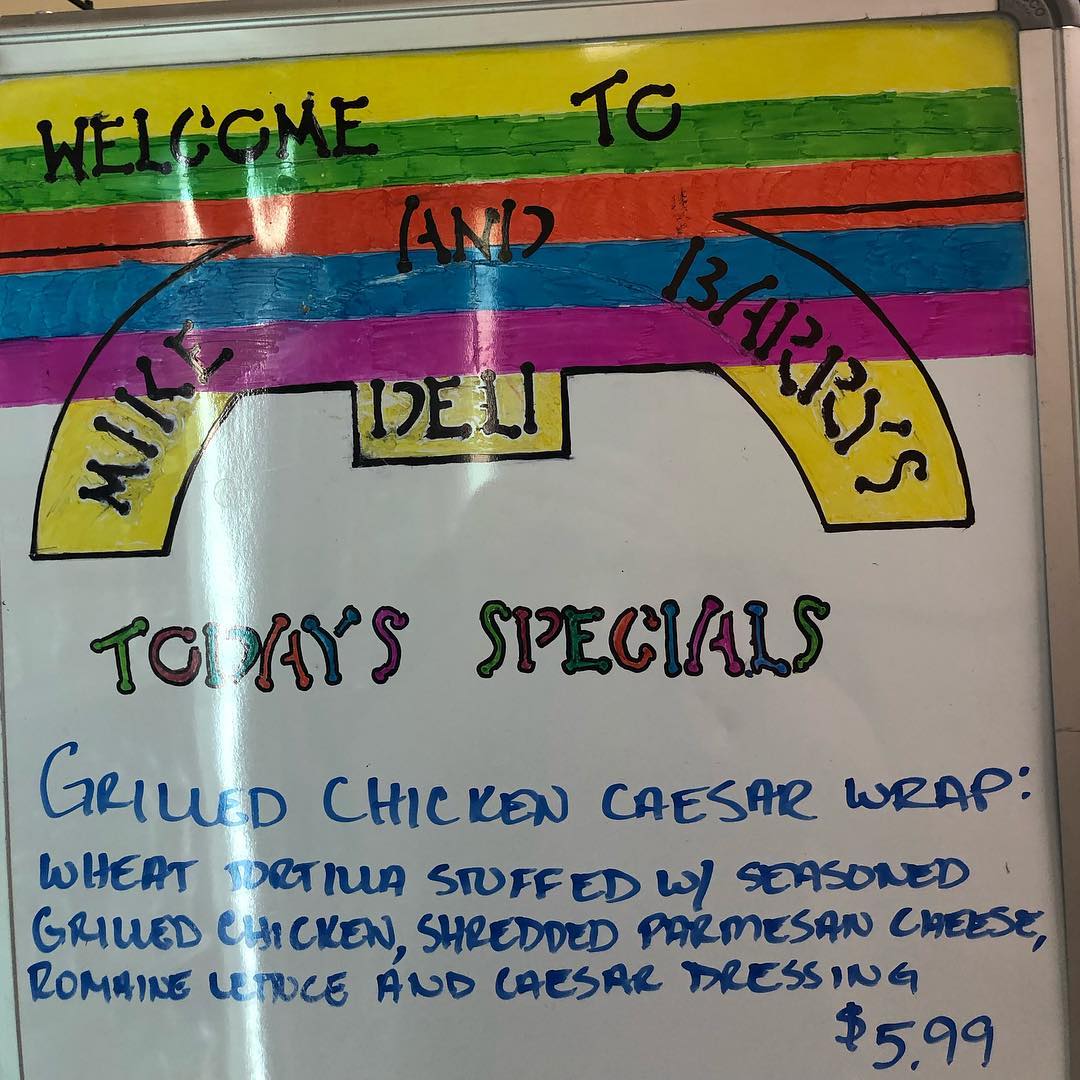 WELCOME TO
MIKE AND BARRY'S
DELI
TODAY'S SPECIALS
GRILLED CHICKEN CAESAR WRAP:
WHEAT TORTILLA STUFFED W/ SEASONED
GRILLED CHICKEN, SHREDDED PARMESAN CHEESE,
ROMAINE LETTUCE AND CAESAR DRESSING
$5.99